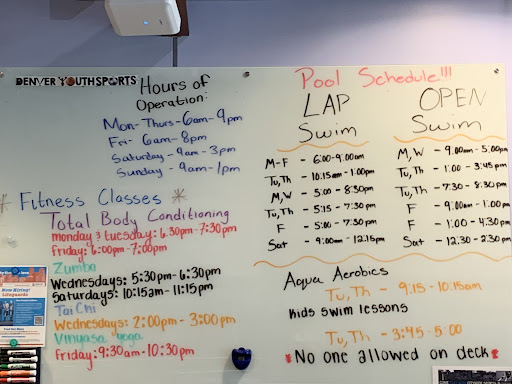 DENVER YOUTH SPORTS
Hours of
Operation:
Mon-Thurs-6am-9pm
Fri- 6am-8pm
Saturday-9am-3pm
Sunday - 9am-1pm
* Fitness Classes *
Total Body Conditioning
monday & tuesday: 6:30pm-7:30pm
friday: 6:00pm-7:00pm
Zumba
Wednesdays: 5:30pm-6:30pm
Saturdays: 10:15am-11:15pm
Tai Chi
Wednesdays: 2:00pm-3:00pm
Vinyasa Yoga
Friday: 9:30am-10:30pm
Now Hiring!
Lifeguards
Pool Schedule!!!
LAP
Swim
M-F - 6:00-9:00am
Tu,Th - 10:15am-1:00pm
M,W - 5:00-8:30pm
Tu,Th - 5:15-7:30pm
F - 5:00-7:30pm
Sat - 9:00am-12:15pm
OPEN
Swim
M,W - 9:00am-5:00pm
Tu,Th - 1:00-3:45pm
Tu,Th - 7:30-8:30pm
F - 9:00am-1:00pm
F - 1:00-4:30pm
Sat - 12:30-2:30pm
Aqua Aerobics
Tu, Th - 9:15-10:15am
Kids Swim lessons
Tu, Th - 3:45-5:00
*No one allowed on deck*